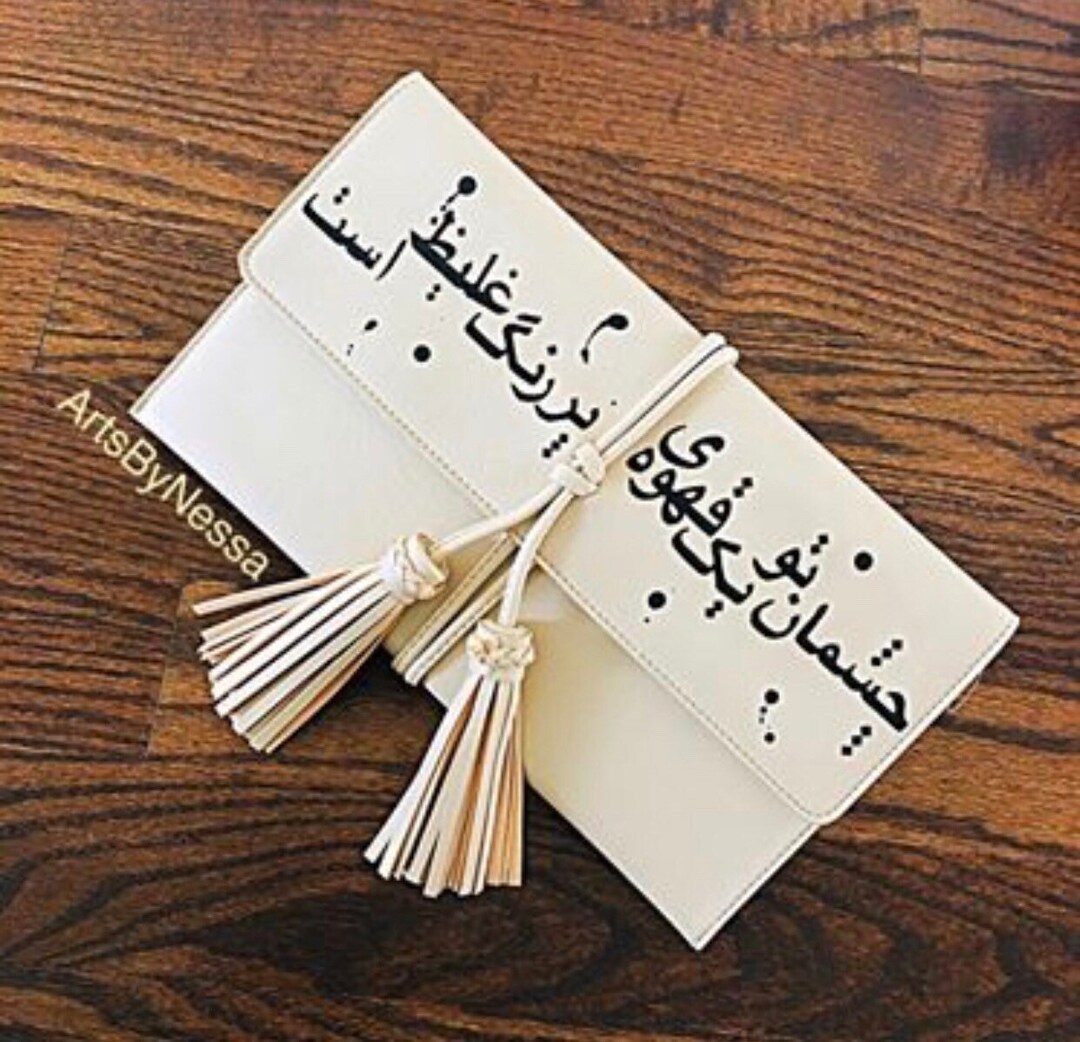 چشمان تو یک قهوه ی پررنگ غلیظ است
ArtsByNessa